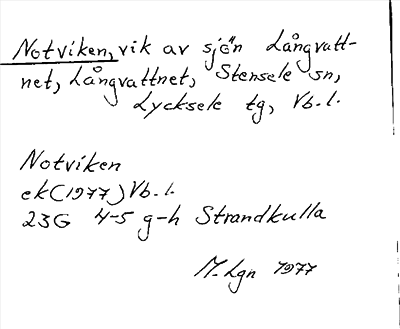 Notviken, vik av sjön Långvatt-
net, Långvattnet, Stensele sn,
Lycksele tg, Vb.l.
Notviken
ek(1977) Vb.l.
23G 4-5 g-h Strandkulla
M.Lgn 1977